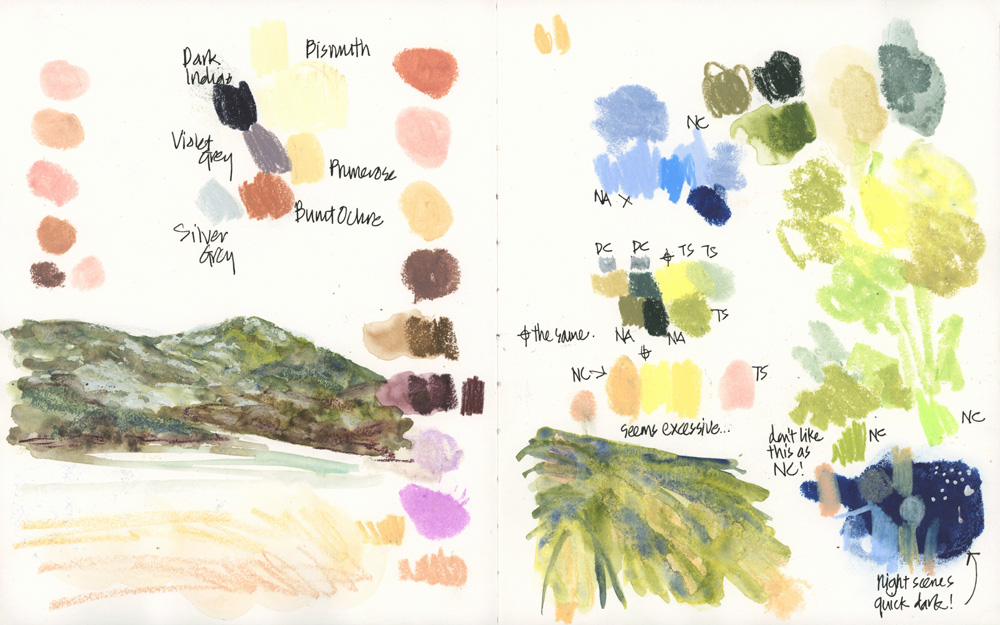 Bismuth
Dark
Indigo
Violet
Grey
Primerose
Burnt Ochre
Silver
Grey
NC
NA X
DC DC TS TS
TS
the same.
NA NA
NC
TS
seems excessive...
don't like
this as
NC!
NC
NC
night scenes
quick dark!